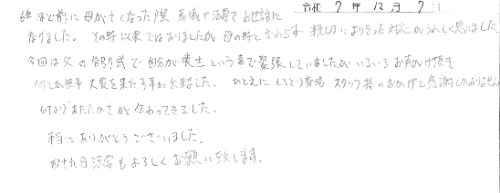 令和 7年 12月 7日
年ほど前に母が亡くなった際 葬儀や法要でお世話に
なりました。その時以来ではありましたが 母の時と変わらず 親切によりそった対応がうれしく思いました。
今回は父の葬式で自分が喪主という事で緊張していましたが いろいろお声かけ頂き
何とか無事 大役を果たす事が出来ました。ひとえに 斎場 スタッフ様のおかげと感謝しかありません
何より あたたかさが伝わってきました。
本当にありがとうございました。
四十九日法要もよろしくお願い致します。